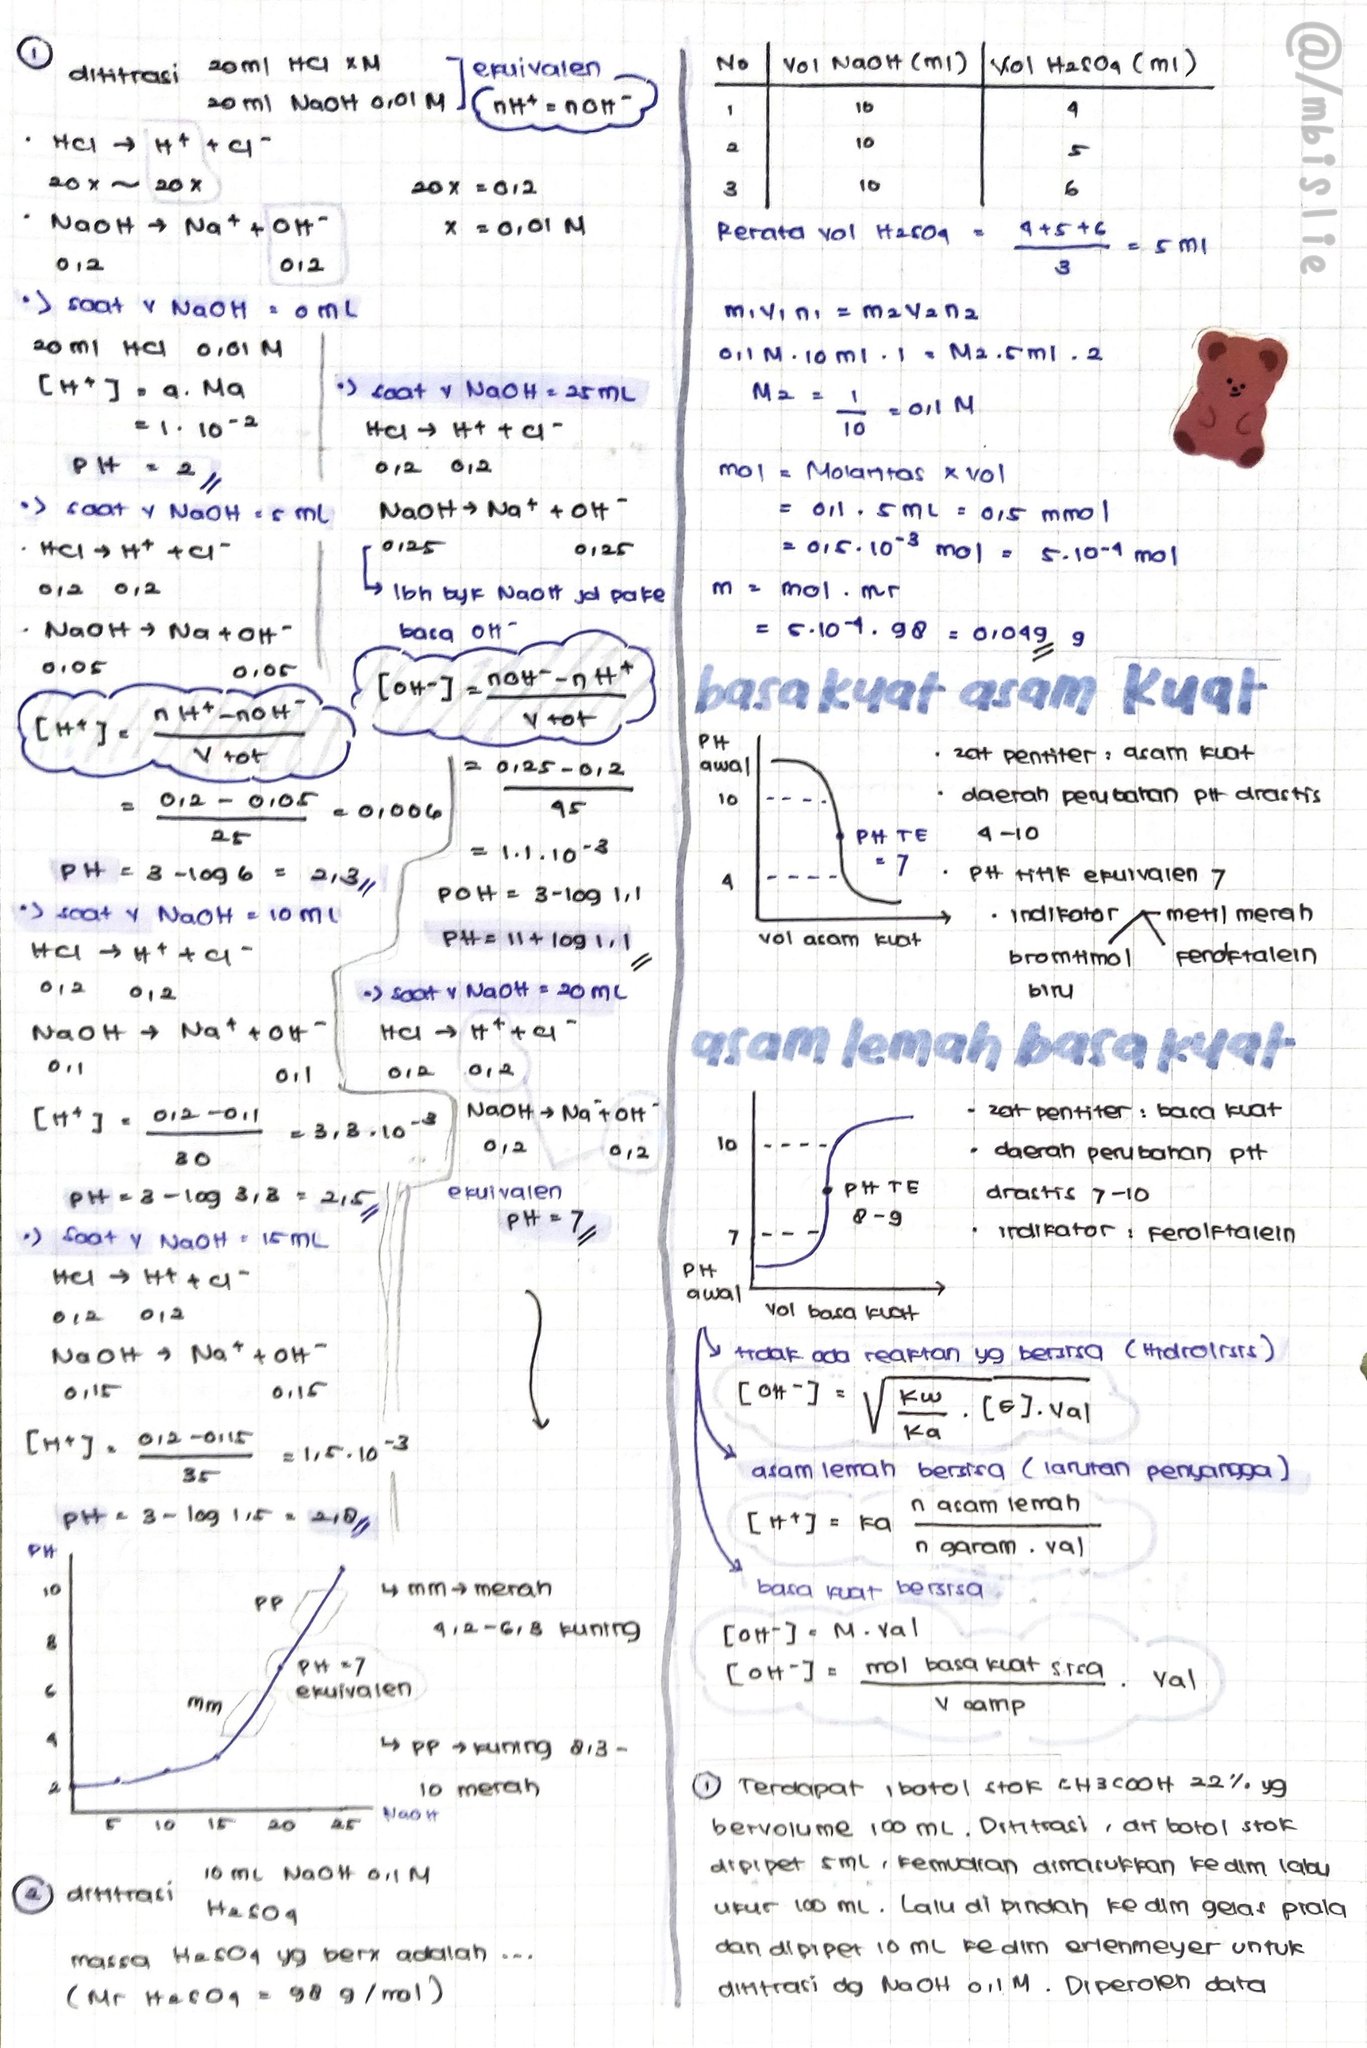 1
dititrasi 20ml HCl x M
20ml NaOH 0,01 M
ekuivalen
nH+ = nOH-
· HCl → H+ + Cl-
20x ~ 20x
20x = 0,2
· NaOH → Na+ + OH-
x = 0,01 M
0,2 0,2
·) saat v NaOH = 0 mL
20 ml HCl 0,01 M
[H+] = a. Ma
= 1. 10-2
PH = 2
·) saat v NaOH = 5 mL
· HCl → H+ + Cl-
0,2 0,2
· NaOH → Na + OH-
0,05 0,05
[H+] = nH+ - nOH-
V tot
= 0,2 - 0,05 = 0,006
25
PH = 3 - log 6 = 2,3
·) saat v NaOH = 10 mL
HCl → H+ + Cl-
0,2 0,2
NaOH → Na+ + OH-
0,1 0,1
[H+] = 0,2 - 0,1 = 3,3.10-3
30
PH = 3 - log 3,3 = 2,5
·) saat v NaOH = 15 mL
HCl → H+ + Cl-
0,2 0,2
NaOH → Na+ + OH-
0,15 0,15
[H+] = 0,2 - 0,15 = 1,5.10-3
35
PH = 3 - log 1,5 = 2,8
·) saat v NaOH = 25 mL
HCl → H+ + Cl-
0,2 0,2
NaOH → Na+ + OH-
0,25 0,25
↳ lbh byk NaOH jd pake
basa OH-
[OH-] = nOH- - nH+
V tot
= 0,25 - 0,2
45
= 1.1.10-3
POH = 3 - log 1,1
PH = 11 + log 1,1
·) saat v NaOH = 20 mL
HCl → H+ + Cl-
0,2 0,2
NaOH → Na+ + OH-
0,2 0,2
ekuivalen
PH = 7
PH
10
8
6
4
2
5 10 15 20 25 NaOH
PP
mm
PH = 7
ekuivalen
↳ mm → merah
4,2 - 6,3 kuning
↳ PP → kuning 8,3 -
10 merah
2
dititrasi 10 mL NaOH 0,1 M
H2SO4
massa H2SO4 yg berx adalah ...
(Mr H2SO4 = 98 g/mol)
@/mbislie
No Vol NaOH (ml) Vol H2SO4 (ml)
1 10 4
2 10 5
3 10 6
Rerata vol H2SO4 = 4+5+6 = 5 ml
3
m1v1n1 = m2v2n2
0,1 M. 10 ml . 1 = M2. 5 ml . 2
M2 = 1 = 0,1 M
10
mol = Molaritas x vol
= 0,1 . 5 mL = 0,5 mmol
= 0,5. 10-3 mol = 5.10-4 mol
m = mol . mr
= 5.10-4. 98 = 0,049 g
basa kuat asam kuat
PH
awal
10
4
PH TE
= 7
vol asam kuat
· zat pentiter : asam kuat
· daerah perubahan pH drastis
4-10
· PH titik ekuivalen 7
· indikator metil merah
bromtimol
biru
Fenolftalein
asam lemah basa kuat
10
7
PH
awal
PH TE
8-9
vol basa kuat
- zat pentiter : basa kuat
· daerah perubahan PH
drastis 7-10
· indikator : Fenolftalein
tidak ada reaktan yg bersisa (Hidrolisis)
[OH-] = √ Kw . [G]. val
Ka
asam lemah bersisa (larutan penyangga)
[H+] = Ka n asam lemah
n garam . val
basa kuat bersisa
[OH-] = M. val
[OH-] = mol basa kuat sisa . val
V camp
1 Terdapat 1 botol stok CH3COOH 22% yg
bervolume 100 mL. Dititrasi, dri botol stok
dipipet 5mL, kemudian dimasukkan ke dlm labu
ukur 100 mL. Lalu di pindah ke dlm gelas piala
dan dipipet 10 mL ke dlm erlenmeyer untuk
dititrasi dg NaOH 0,1 M. Diperoleh data